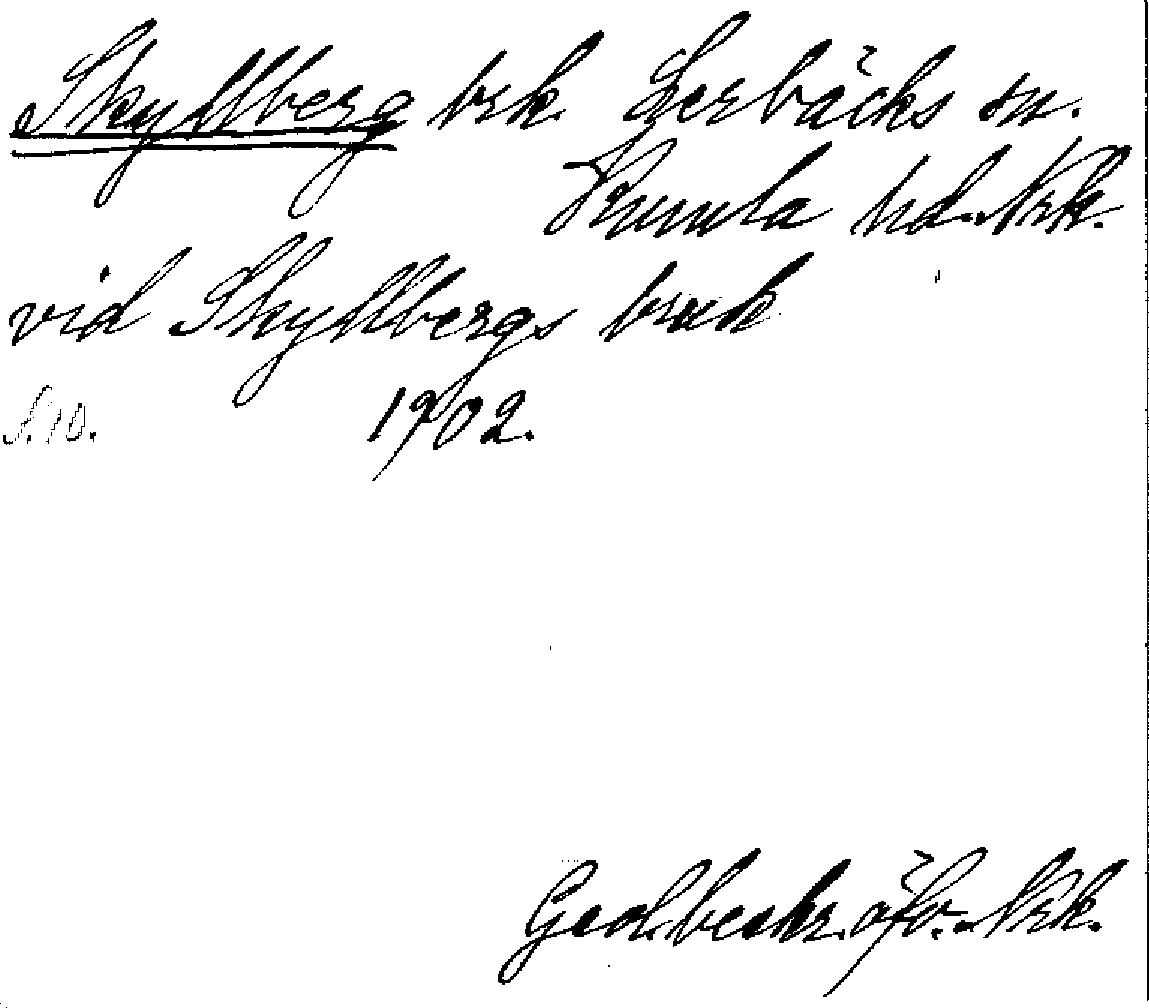 Skyllberg brk. Lerbäcks sn.
Kumla hd. Nrk.
vid Skyllbergs bruk
S. 10. 1902.
Geol. beskr. öfv. Nrk.